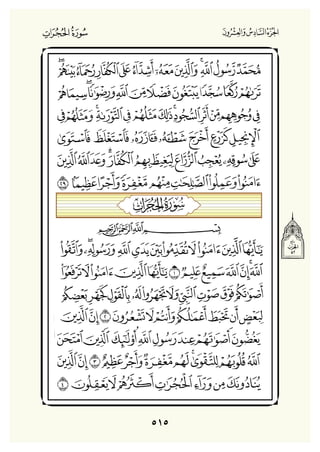 الجزء السادس والعشرون
سورة الحجرات
محمد رسول الله والذين معه أشداء على الكفار رحماء بينهم
تراهم ركعا سجدا يبتغون فضلا من الله ورضوانا سيماهم
في وجوههم من أثر السجود ذلك مثلهم في التوراة ومثلهم في
الإنجيل كزرع أخرج شطأه فآزره فاستغلظ فاستوى
على سوقه يعجب الزراع ليغيظ بهم الكفار وعد الله الذين
آمنوا وعملوا الصالحات منهم مغفرة وأجرا عظيما ٢٩
سورة الحجرات
بسم الله الرحمن الرحيم
يا أيها الذين آمنوا لا تقدموا بين يدي الله ورسوله واتقوا
الله إن الله سميع عليم ١ يا أيها الذين آمنوا لا ترفعوا
أصواتكم فوق صوت النبي ولا تجهروا له بالقول كجهر بعضكم
لبعض أن تحبط أعمالكم وأنتم لا تشعرون ٢ إن الذين
يغضون أصواتهم عند رسول الله أولئك الذين امتحن
الله قلوبهم للتقوى لهم مغفرة وأجر عظيم ٣ إن الذين
ينادونك من وراء الحجرات أكثرهم لا يعقلون ٤
٥١٥